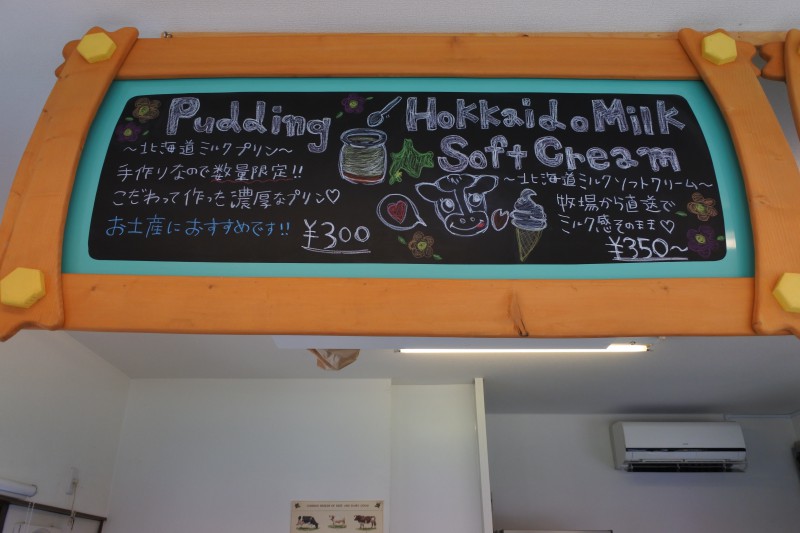 Pudding
～北海道ミルクプリン～
手作りなので数量限定!!
こだわって作った濃厚なプリン♡
お土産におすすめです!!
¥300
Hokkaido Milk
Soft Cream
～北海道ミルクソフトクリーム～
牧場から直送で
ミルク感そのまま♡
¥350～